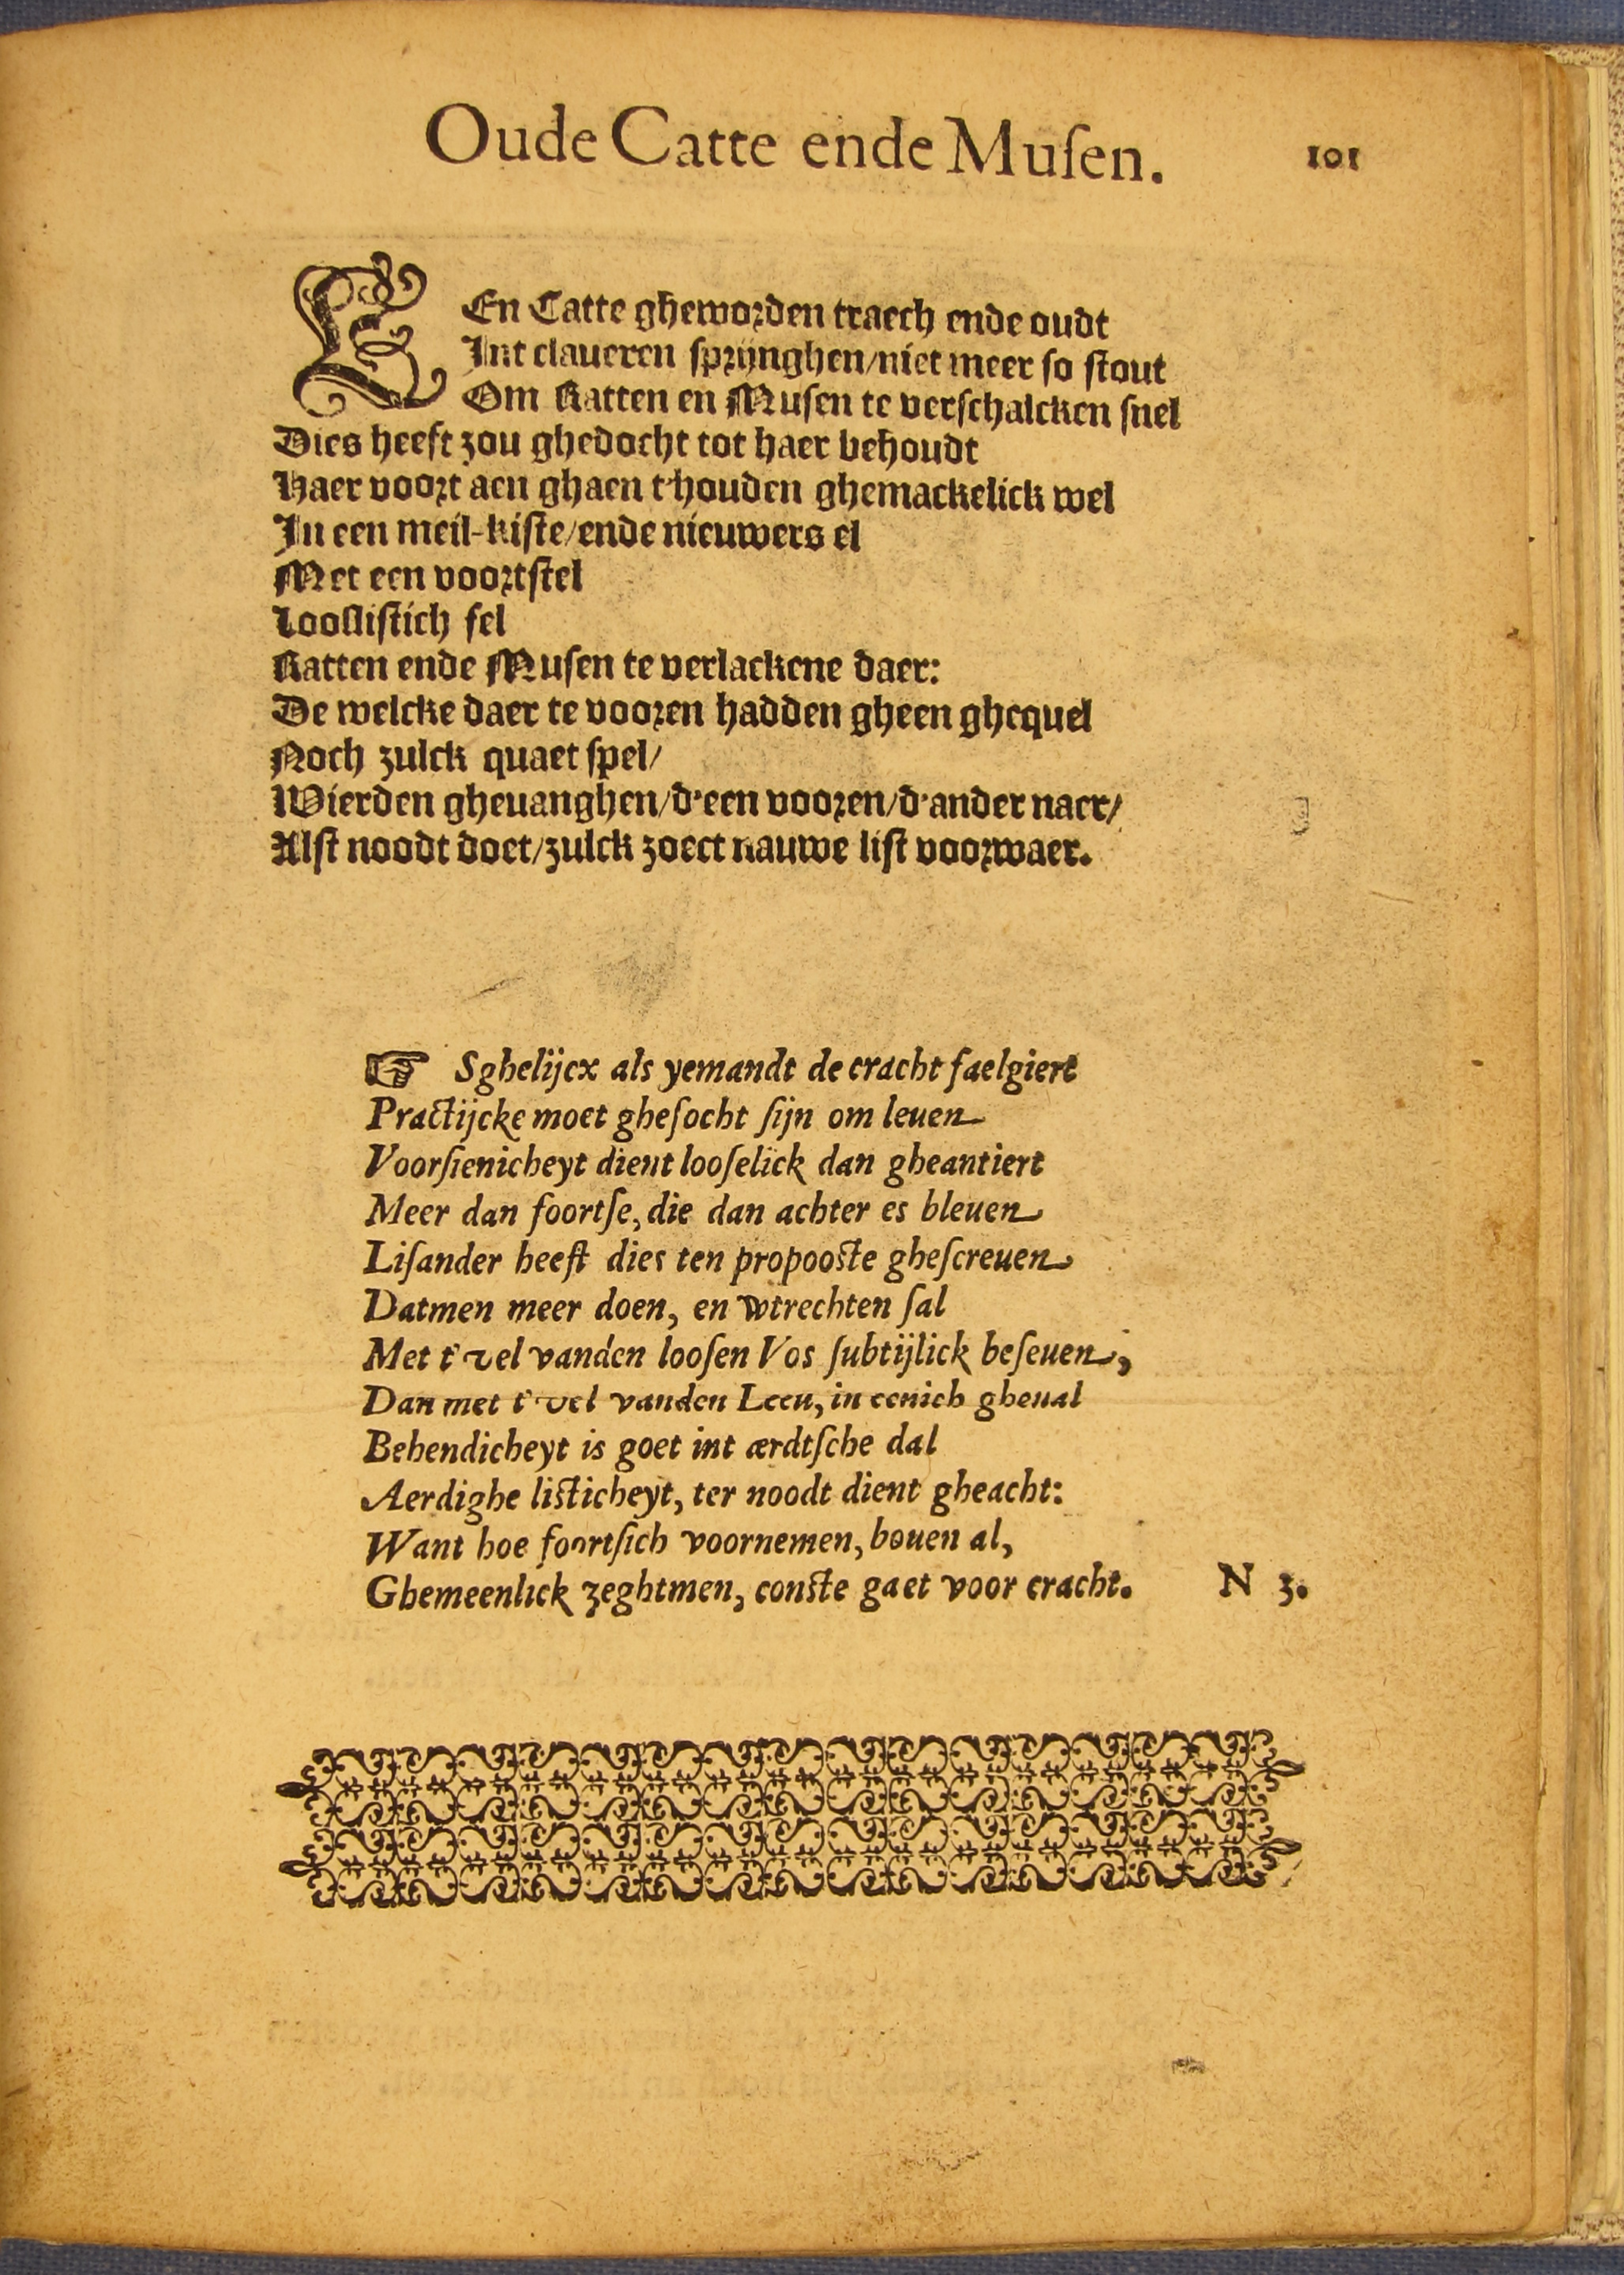 Oude Catte ende Muſen. 101
EEn Catte gheworden traech ende oudt
Int claueren sprijnghen/niet meer so stout
Om Ratten en Musen te verschalcken snel
Dies heeft zou ghedocht tot haer behoudt
Haer voort aen ghaen t'houden ghemackelick wel
In een meil-kiste/ende nieuwers el
Met een voortstel
Looslistich fel
Ratten ende Musen te verlackene daer:
De welcke daer te vooren hadden gheen ghequel
Noch zulck quaet spel/
Wierden gheuanghen/d'een vooren/d'ander naer/
Alst noodt doet/zulck zoect nauwe list voorwaer.
☞ Sghelijcx als yemandt de cracht faelgiert
Practijcke moet gheſocht ſijn om leuen
Voorſienicheyt dient looſelick dan gheantiert
Meer dan foortſe, die dan achter es bleuen
Liſander heeft dies ten propooſte gheſcreuen
Datmen meer doen, en wtrechten ſal
Met t'vel vanden looſen Vos ſubtijlick beſeuen,
Dan met t'vel vanden Leeu, in eenich gheual
Behendicheyt is goet int ærdtſche dal
Aerdighe liſticheyt, ter noodt dient gheacht:
Want hoe foortſich voornemen, bouen al,
Ghemeenlick zeghtmen, conſte gaet voor cracht. N 3.